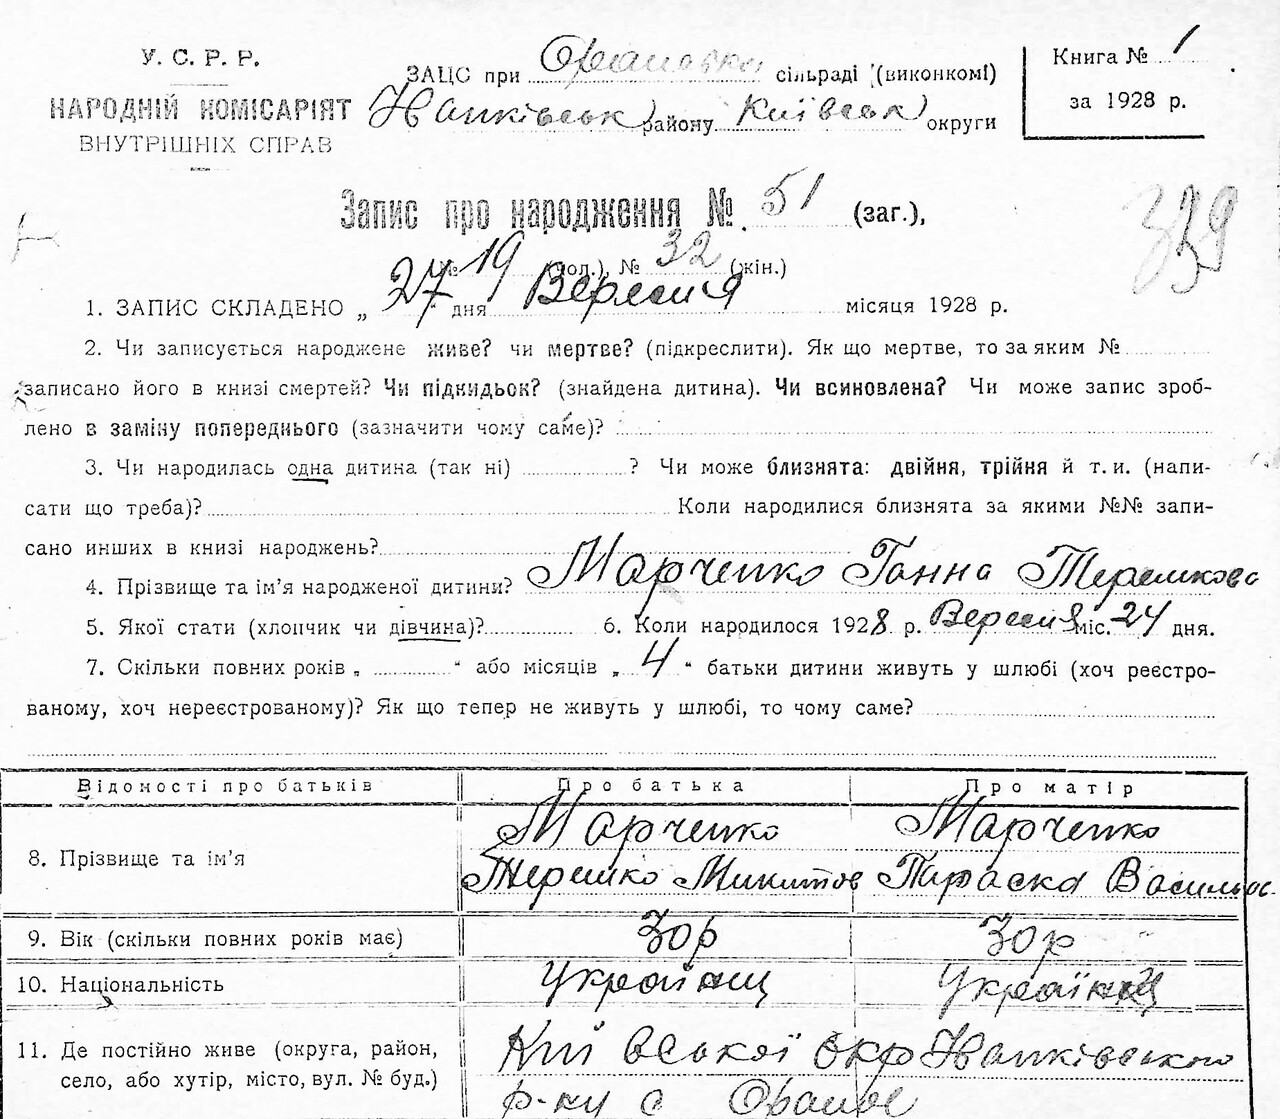 У. С. Р. Р.
НАРОДНІЙ КОМІСАРІЯТ
ВНУТРІШНІХ СПРАВ
ЗАЦС при сільраді (виконкомі)
району Київськ округи
Книга № 1
за 1928 р.
Запис про народження № 51 (заг.),
№ 19 (чол.), № 32 (жін.)
339
1. ЗАПИС СКЛАДЕНО „ 27 “ дня Вересня місяця 1928 р.
2. Чи записується народжене живе? чи мертве? (підкреслити). Як що мертве, то за яким №
записано його в книзі смертей? Чи підкидьок? (знайдена дитина). Чи всиновлена? Чи може запис зроб-
лено в заміну попереднього (зазначити чому саме)?
3. Чи народилась одна дитина (так ні) ? Чи може близнята: двійня, трійня й т. и. (напи-
сати що треба)? Коли народилися близнята за якими №№ запи-
сано инших в книзі народжень?
4. Прізвище та ім’я народженої дитини? Марченко Ганна Терешкова
5. Якої стати (хлопчик чи дівчина)? 6. Коли народилося 1928 р. Вересня міс. 24 дня.
7. Скільки повних років „ “ або місяців „ 4 “ батьки дитини живуть у шлюбі (хоч реєстро-
ваному, хоч нереєстрованому)? Як що тепер не живуть у шлюбі, то чому саме?
Відомості про батьків Про батька Про матір
8. Прізвище та ім’я Марченко Марченко
Терешко Микитов Параска Васильов
9. Вік (скільки повних років має) 30 р 30 р
10. Національність Україннц Україннц
11. Де постійно живе (округа, район, Київської окр
село, або хутір, місто, вул. № буд.) р-ну с